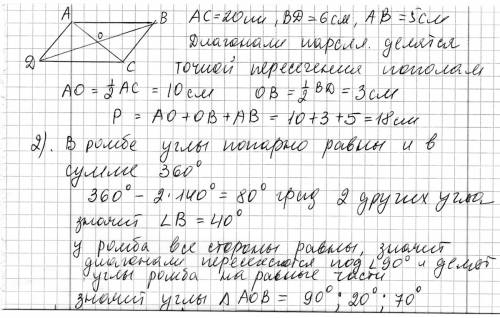 A B O D C
AC=20см, BD=6см, AB=5см
Диагонали паралл. делятся
точкой пересечения пополам
AO = 1/2 AC = 10см OB = 1/2 BD = 3см
P = AO + OB + AB = 10 + 3 + 5 = 18см
2). В ромбе углы попарно равны и в
сумме 360°
360° - 2·140° = 80° град 2 других угла
значит ∠B = 40°
у ромба все стороны равны, значит
диагонали пересекаются под ∠90° и делят
углы ромба на равные части
значит углы △ AOB = 90°; 20°; 70°